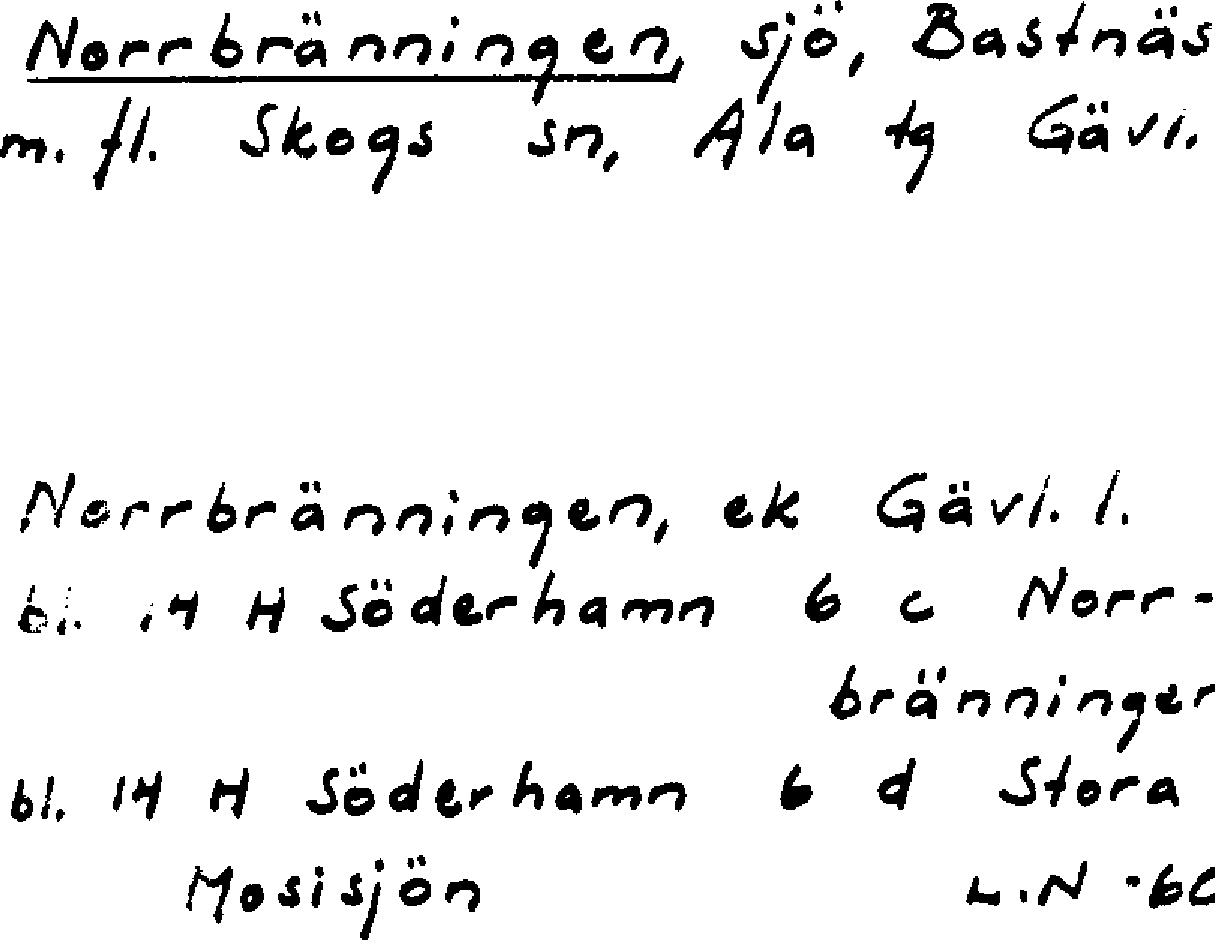 Norrbränningen, sjö, Bastnäs
m. fl. Skogs sn, Ala tg Gävl.
Norrbränningen, ek Gävl. l.
bl. 14 H Söderhamn 6 c Norr-
bränningen
bl. 14 H Söderhamn 6 d Stora
Mosisjön L.N -60